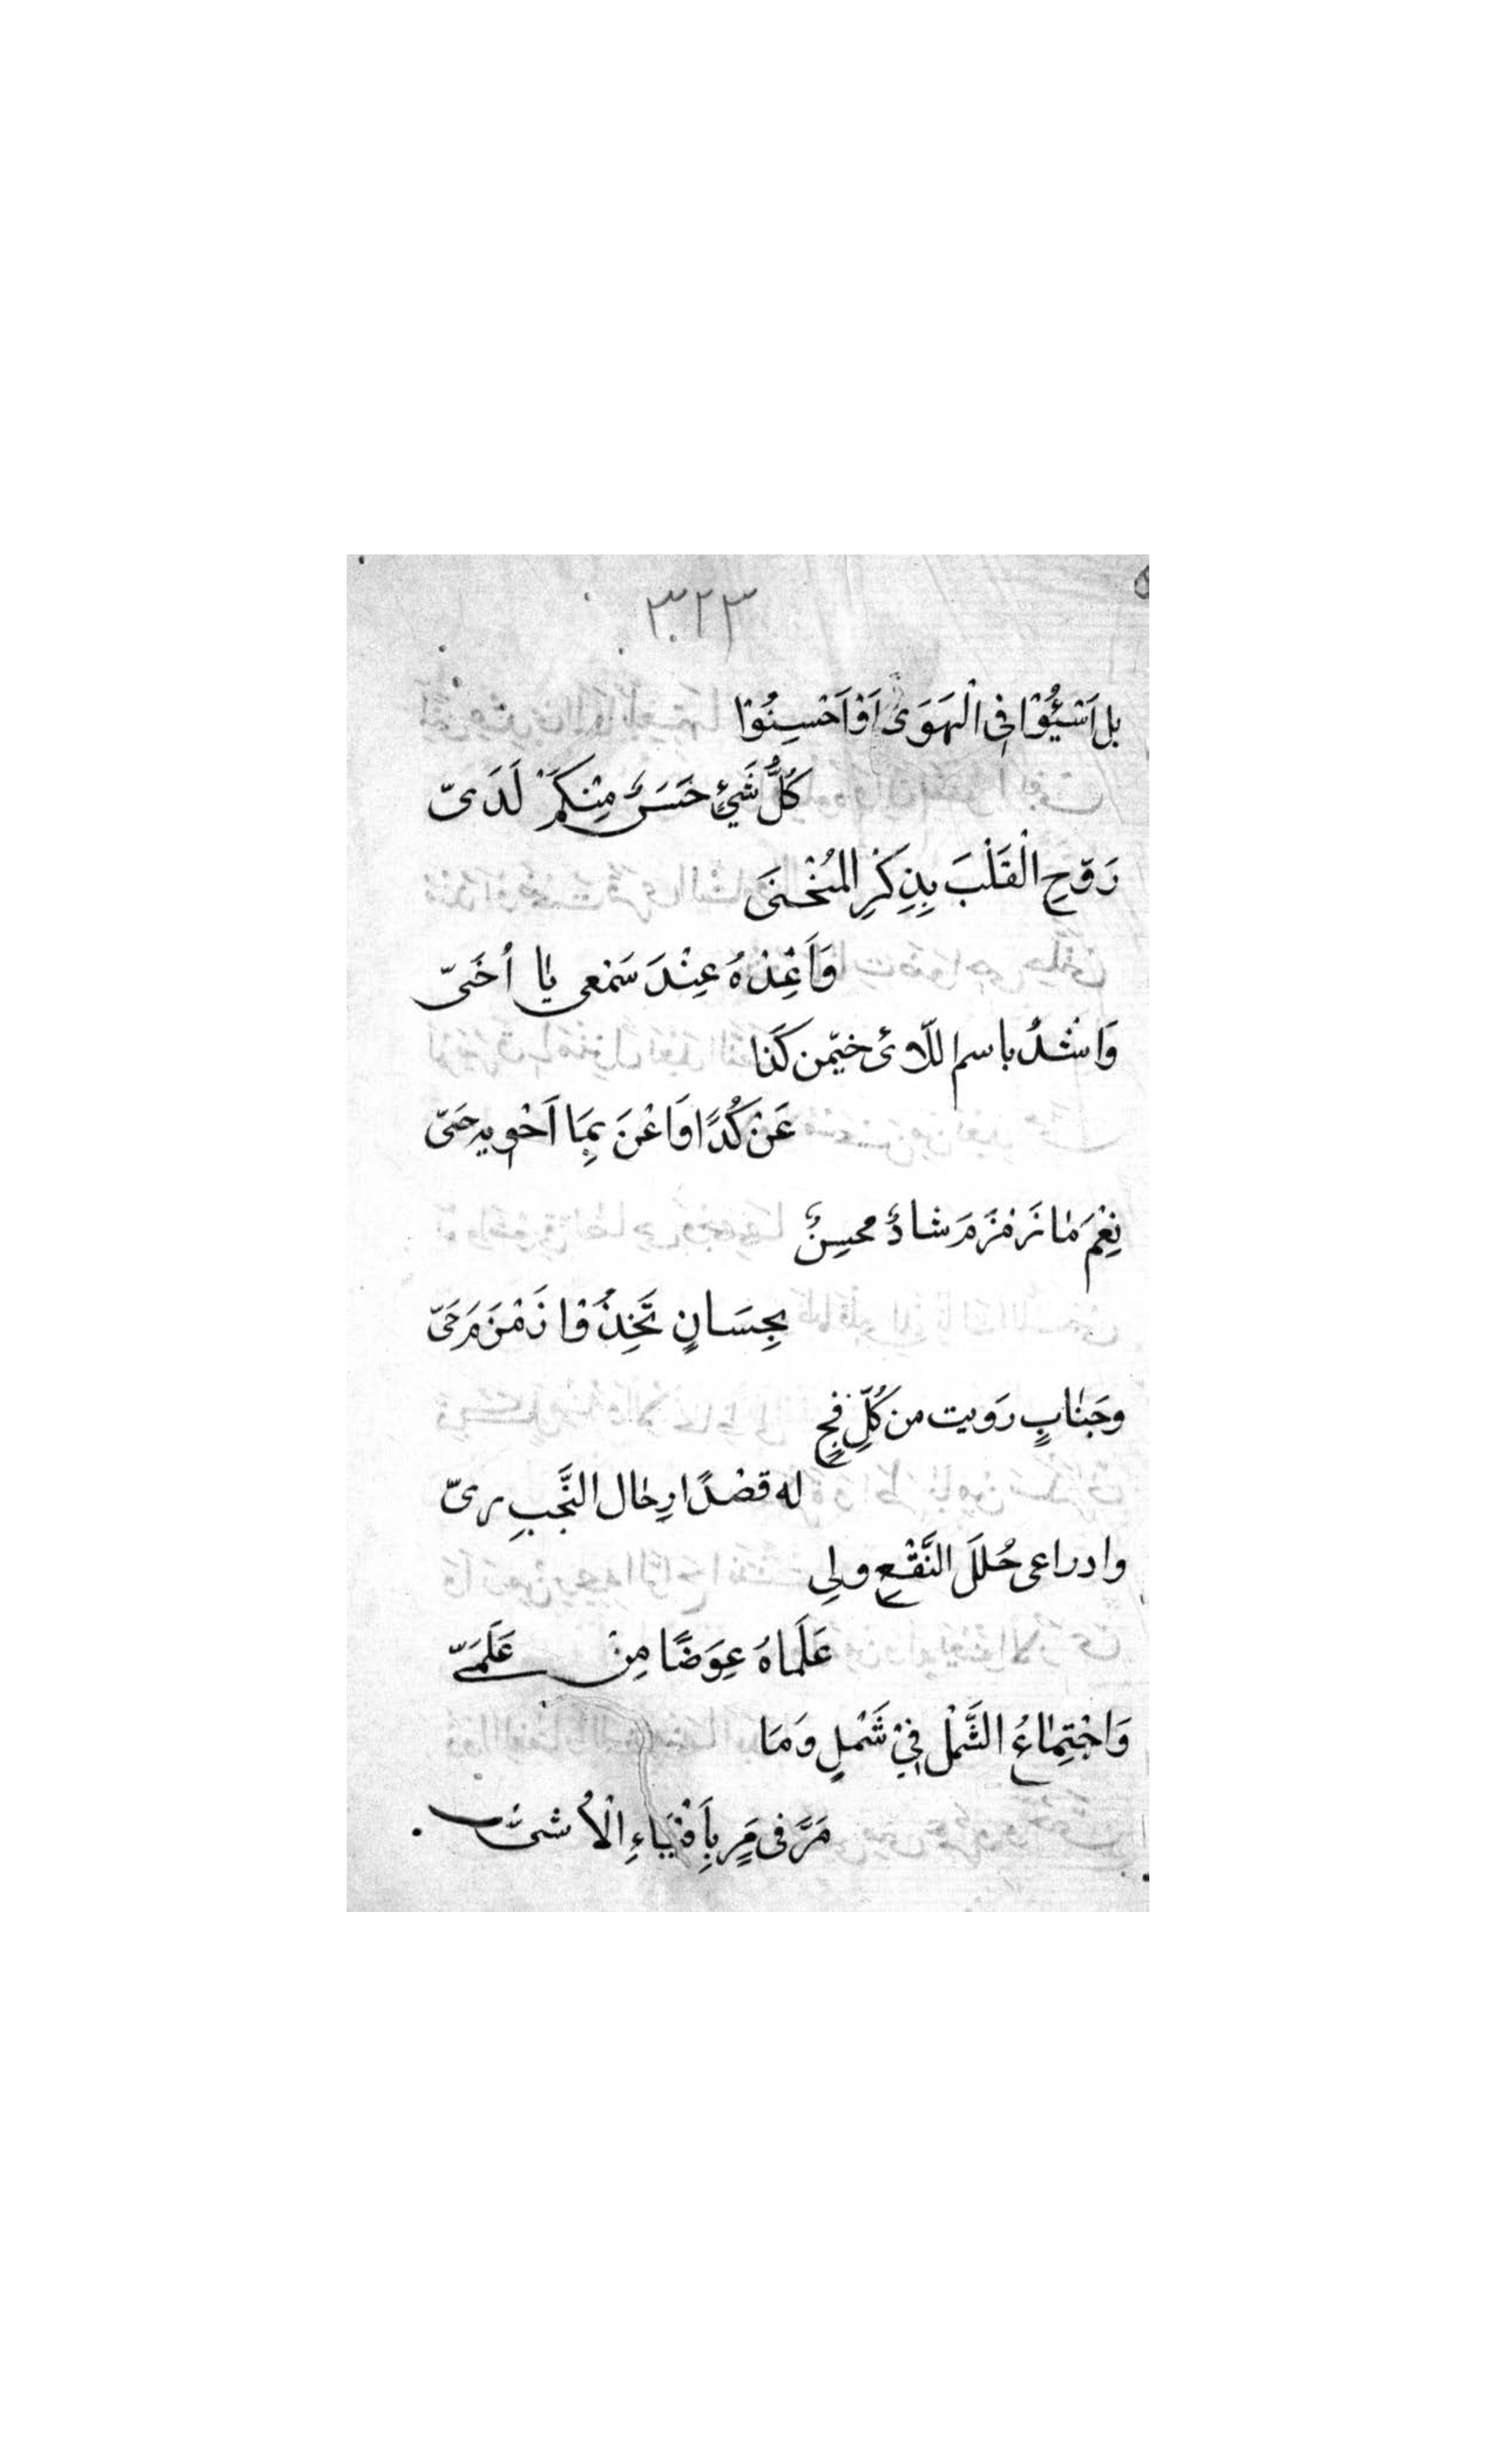 ٣٢٣
بل اَسْيُؤْا فِى الْهَوَىٰ اَوْ اَحْسِنُوْا
كُلُّ شَيْءٍ حَسَنٌ مِنْكُمْ لَدَىّ
رَوّحِ الْقَلْبَ بِذِكْرِ المُنْحَنَى
وَاَعِدْهُ عِنْدَ سَمْعى يا اُخَىّ
وَاشْدُ باسم اللّاوىٔ خيّمن كَذا
عَنْ كُدًا وَاعْنَ بِمَا اَحْويه حَىّ
نِعْمَ مٰا زَمْزَمَ شادٌ محسِنٌ
بِحِسَانٍ تَخِذُوْا زَمْزَمَ حَىّ
وجَنٰابٍ زويت من كُلِّ فجٍ
له قصْدًا رِجٰال النَّجبِ زىّ
وادراعى حُللَ النَّقْعِ ولى
عَلَماهُ عِوَضًا مِنْ عَلَمَىّ
وَاجْتِمٰاعُ الشَّمْلِ فِيْ شَمْلٍ وَمَا
مَرَّ فى مَرٍ بِاَفْيَاءِ الْاُشَىّ